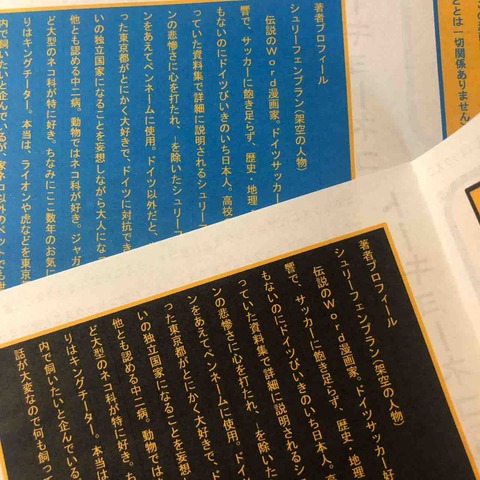 ととは一切関係ありません。
著者プロフィール
シュリーフェンプラン(架空の人物)
伝説のWord漫画家。ドイツサッカー
響で、サッカーに飽き足らず、歴史・地理
もないのにドイツびいきのいち日本人。高校
っていた資料集で詳細に説明されるシュリーフ
ンの悲惨さに心を打たれ、ーを除いたシュリーフ
ンをあえてペンネームに使用。ドイツ以外だと、
った東京都がとにかく大好きで、ドイツに対抗でき
いの独立国家になることを妄想しながら大人にな
他とも認める中二病。動物ではネコ科が好き。ジャガ
ど大型のネコ科が特に好き。ちなみにここ数年のお気に
りはキングチーター。本当は、ライオンや虎などを東京
内で飼いたいと企んでいるが、家ネコ以外のペットでも
著者プロフィール
シュリーフェンプラン(架空の人物)
伝説のWord漫画家。ドイツサッカー好
響で、サッカーに飽き足らず、歴史・地理
もないのにドイツびいきのいち日本人。高
っていた資料集で詳細に説明されるシ
ンの悲惨さに心を打たれ、ーを除いた
ンをあえてペンネームに使用。ドイ
った東京都がとにかく大好きで、ド
いの独立国家になることを妄想
他とも認める中二病。動物では
ど大型のネコ科が特に好き。ち
りはキングチーター。本当は
内で飼いたいと企んでいる
話が大変なので何も飼って